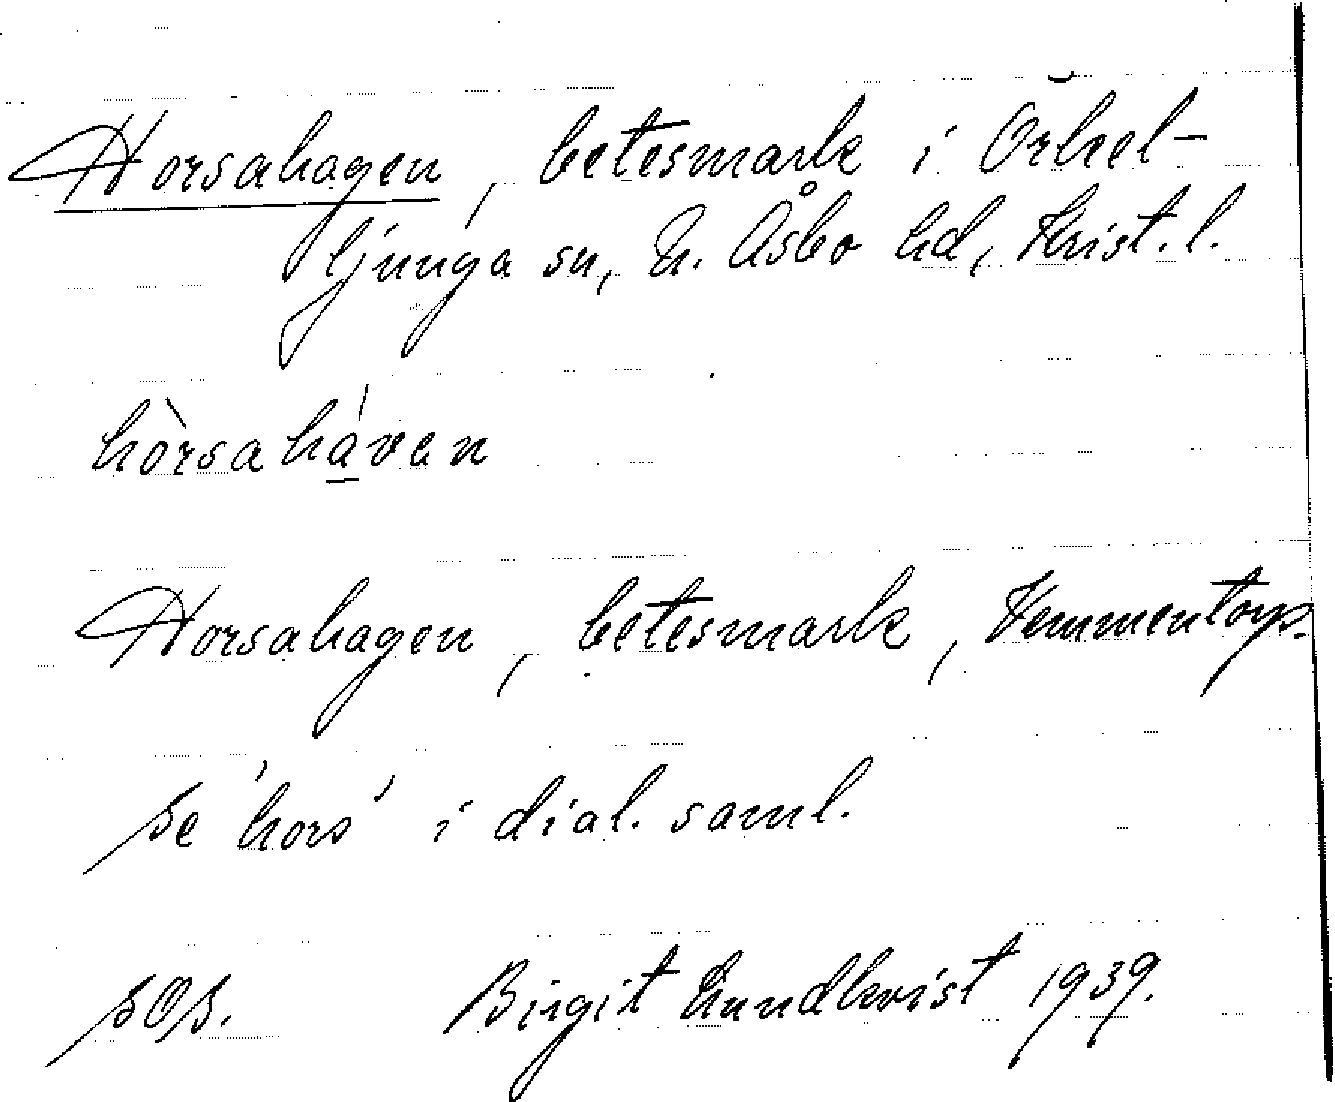 Horsahagen, betesmark i Örkel-
ljunga sn, N. Åsbo hd, Krist. l.
hòrsahá̱ven
Horsahagen, betesmark, Vemmentorp.
se 'hors' i dial. saml.
sOs. Birgit Lundkvist 1939.